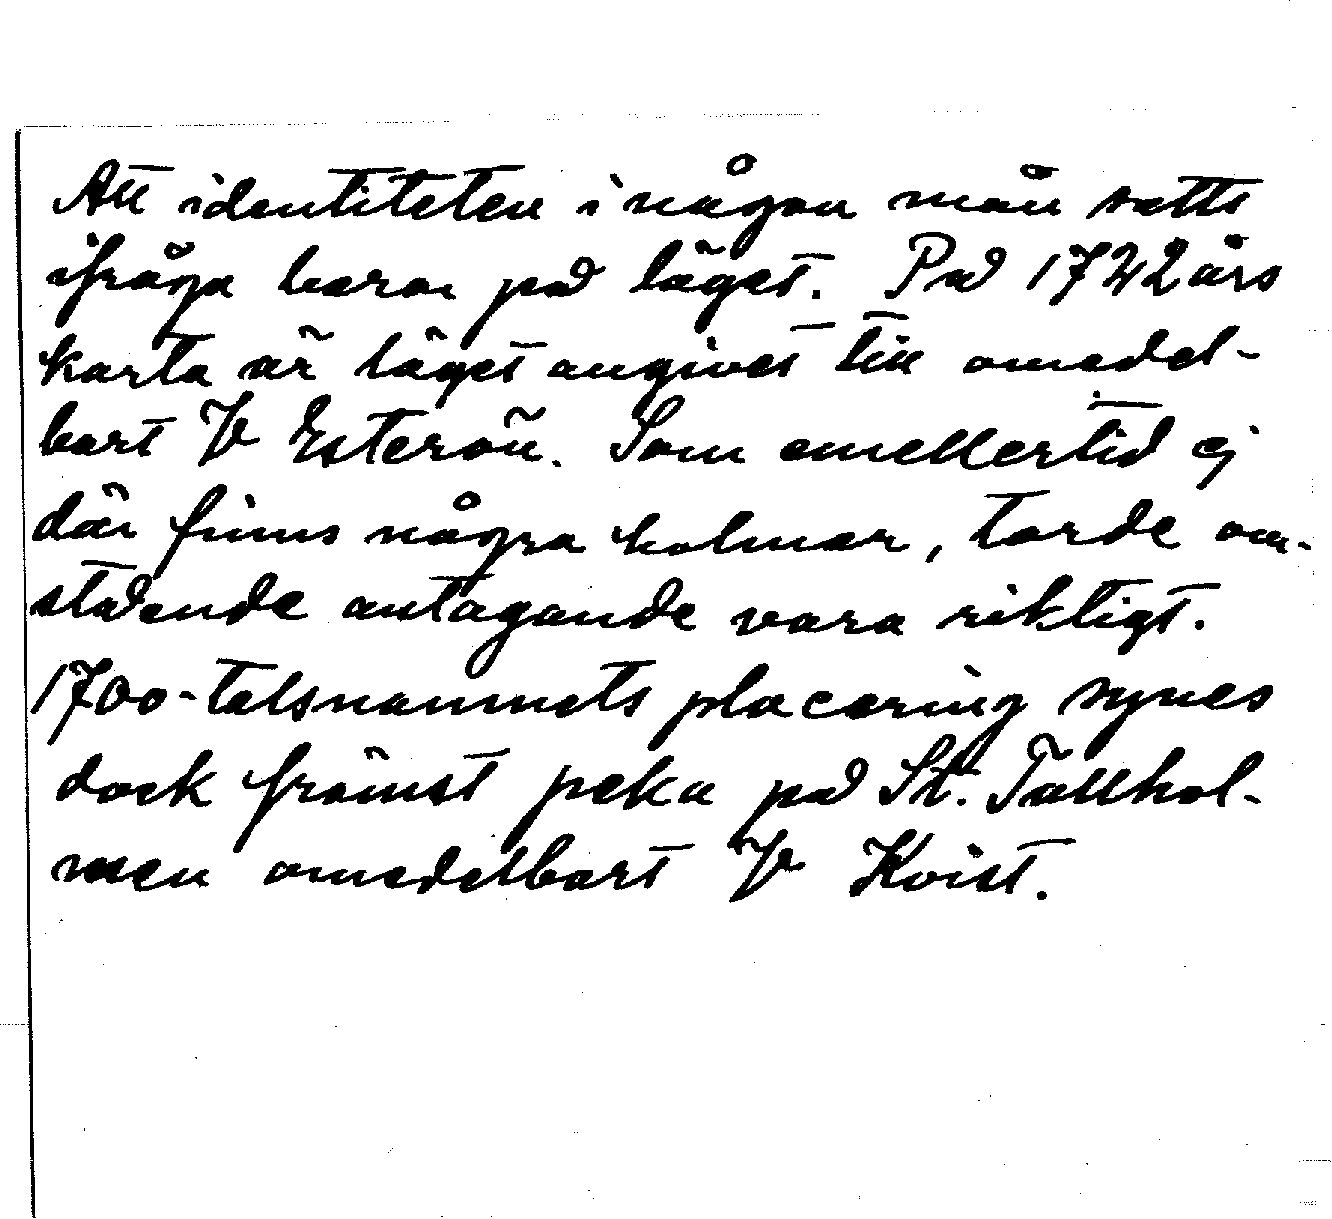 Att identiteten i någon mån satts
ifråga beror på läget. På 1742 års
karta är läget angivet till omedel-
bart V Esterön. Som emellertid ej
där finns några holmar, torde om-
stående antagande vara riktigt.
1700-talsnamnets placering synes
dock främst peka på St. Tallhol-
men omedelbart V Kvist.